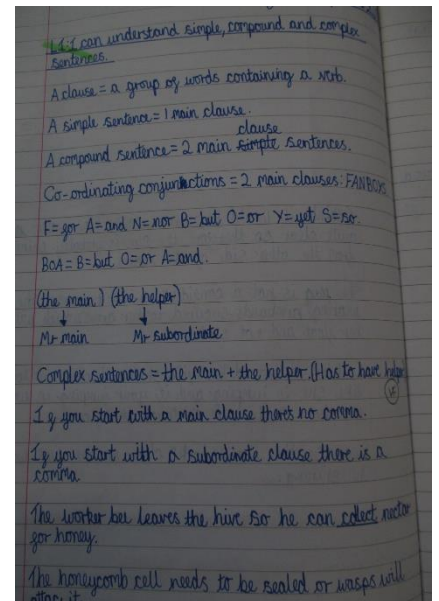 L.I: I can understand simple, compound and complex
sentences.
A clause = a group of words containing a verb.
A simple sentence = 1 main clause.
clause
A compound sentence = 2 main simple sentences.
Co-ordinating conjunctions = 2 main clauses: FANBOYS
F=for A=and N=nor B=but O=or Y=yet S=so.
BOA = B=but O=or A=and.
(the main) (the helper)
Mr main Mr subordinate
Complex sentences = the main + the helper. (Has to have helper)
If you start with a main clause theres no comma.
If you start with a subordinate clause there is a
comma
The worker bee leaves the hive so he can collect nectar
for honey.
The honeycomb cell needs to be sealed or wasps will
attack it